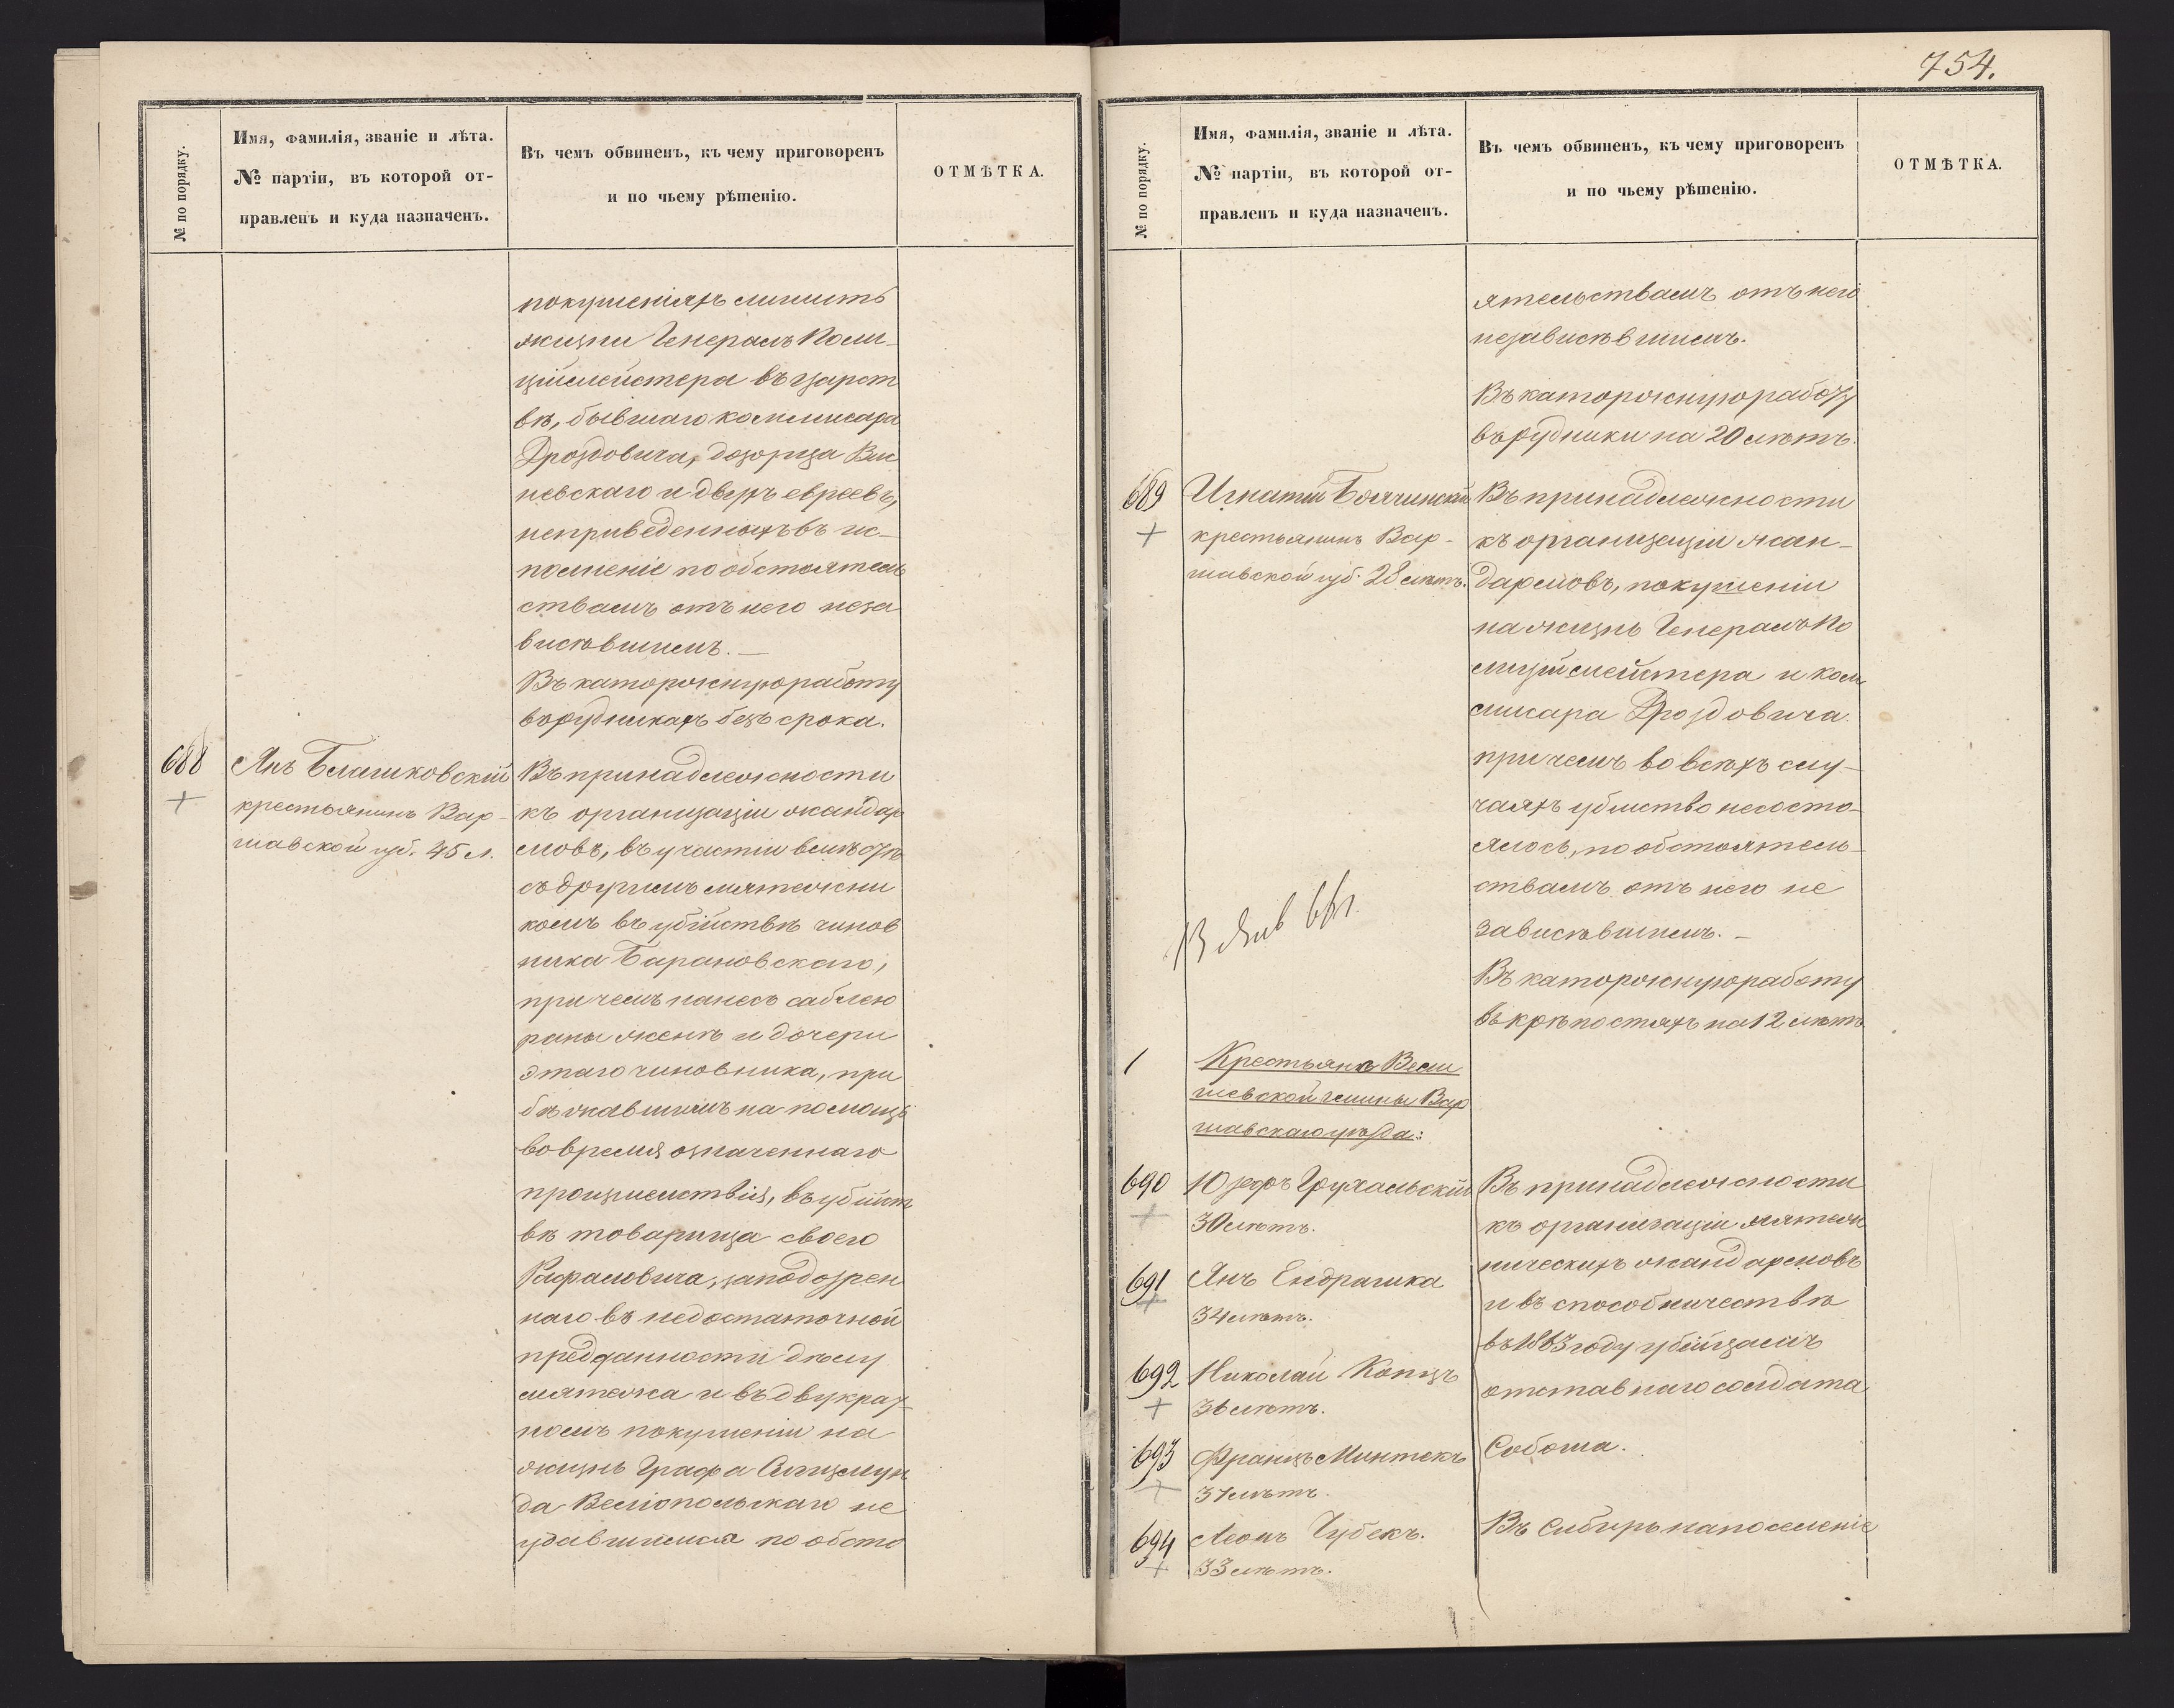 754.
№ по порядку.
Имя, фамилія, званіе и лѣта.
№ партіи, въ которой от-
правленъ и куда назначенъ.
Въ чемъ обвиненъ, къ чему приговоренъ
и по чьему рѣшенію.
ОТМѢТКА.
покушеніяхъ лишить
жизни Генералъ Поли-
ціймейстера въ царст
вѣ, бывшаго коммисара
Дроздовича, дозорца Ви
невскаго и двухъ евреевъ,
неприведенныхъ въ ис-
полненіе по обстоятель
ствамъ отъ него неза
висѣвшимъ.—
Въ каторжную работу
въ рудникахъ безъ срока.
688
Янъ Блашковскій
крестьянинъ Вар-
шавской губ. 45 л.
Въ принадлежности
къ организаціи жандар
мовъ, въ участіи вмѣстѣ
съ другимъ мятежни
комъ въ убійствѣ чинов
ника Барановскаго,
причемъ нанесъ саблею
раны женѣ и дочери
этаго чиновника, при
бѣжавшимъ на помощь
во время означеннаго
произшествія, въ убійст
вѣ товарища своего
Рафаловича, заподозрен
наго въ недостаточной
преданности дѣлу
мятежа и въ двукрат
номъ покушеніи на
жизнь Графа Сигизмун
да Велiопольскаго не
удавшимся по обсто
№ по порядку.
Имя, фамилія, званіе и лѣта.
№ партіи, въ которой от-
правленъ и куда назначенъ.
Въ чемъ обвиненъ, къ чему приговоренъ
и по чьему рѣшенію.
ОТМѢТКА.
ятельствамъ отъ него
независѣвшимъ.
Въ каторжную работу
въ рудники на 20 лѣтъ.
689
Игнатій
крестьянинъ Вар-
шавской губ. 28 лѣтъ.
Въ принадлежности
къ организаціи жан-
дармовъ, покушеніи
на жизнь Генералъ По
лиціймейстера и ком
мисара Дроздовича.
причемъ во всѣхъ слу-
чаяхъ убійство несосто-
ялось, по обстоятель-
ствамъ отъ него не
зависѣвшимъ.—
Въ каторжную работу
въ крѣпостяхъ на 12 лѣтъ
13 Янв 66 г.
1
Крестьяне Вели
шевской гмины Вар
шавскаго уѣзда:
690
Юзефъ Грухальскій
30 лѣтъ.
691
Янъ Ендрашка
34 лѣтъ.
692
Николай Копецъ
36 лѣтъ.
693
Францъ Минтекъ
37 лѣтъ.
694
Леонъ Чубекъ.
33 лѣтъ.
Въ принадлежности
къ организаціи мятеж
ническихъ жандармовъ
и въ способничествѣ
въ 1863 году убійцамъ
отставнаго солдата
Собоша.
Въ Сибирь на поселеніе